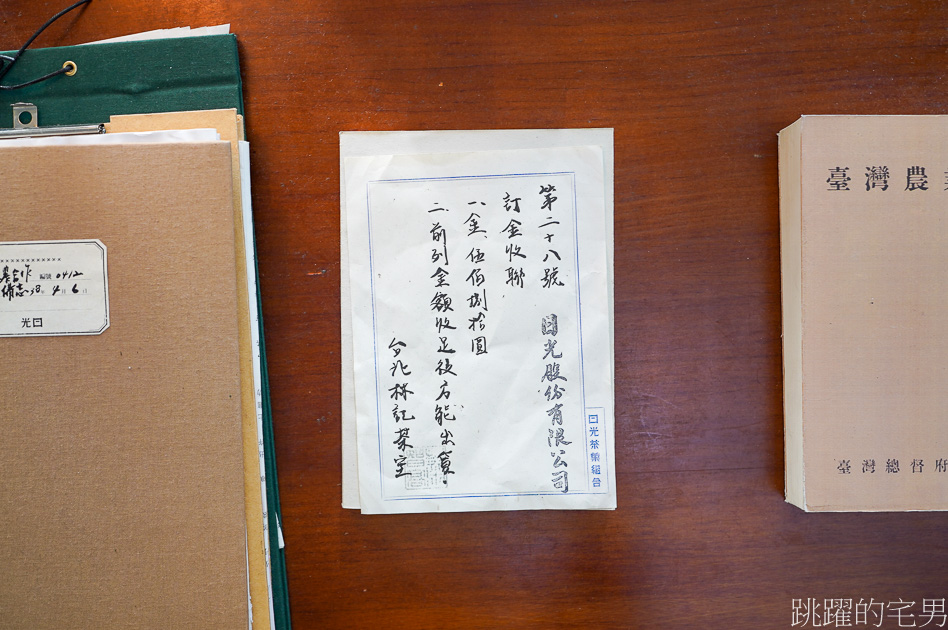 第二十八號 日光股份有限公司
訂金收聯
一、金、伍佰捌拾圓
二、前列金額收足後方能出貨.
台北林記茶室
日光茶業組合
農合作 編號 0412
備忘 38年 4月 6日
日光
臺灣農
臺灣總督府
跳躍的宅男